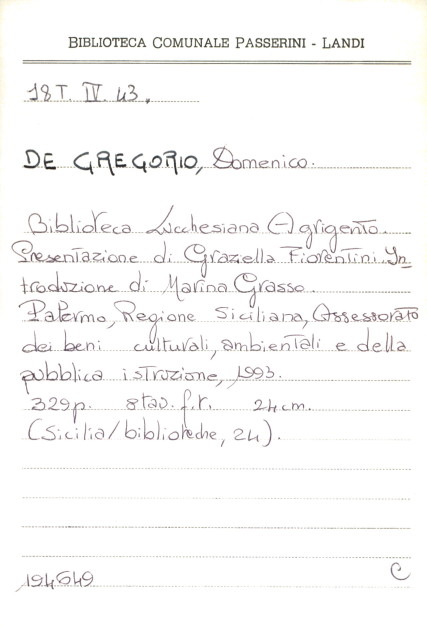 BIBLIOTECA COMUNALE PASSERINI - LANDI
18 T. IV. 43.
DE GREGORIO, Domenico.
Biblioteca Lucchesiana Agrigento.
Presentazione di Graziella Fiorentini. In
troduzione di Marina Grasso.
Palermo, Regione Siciliana, Assessorato
dei beni culturali, ambientali e della
pubblica istruzione, 1993.
329p. 8 tav. f.t. 24 cm.
(Sicilia/biblioteche, 24).
194649
C